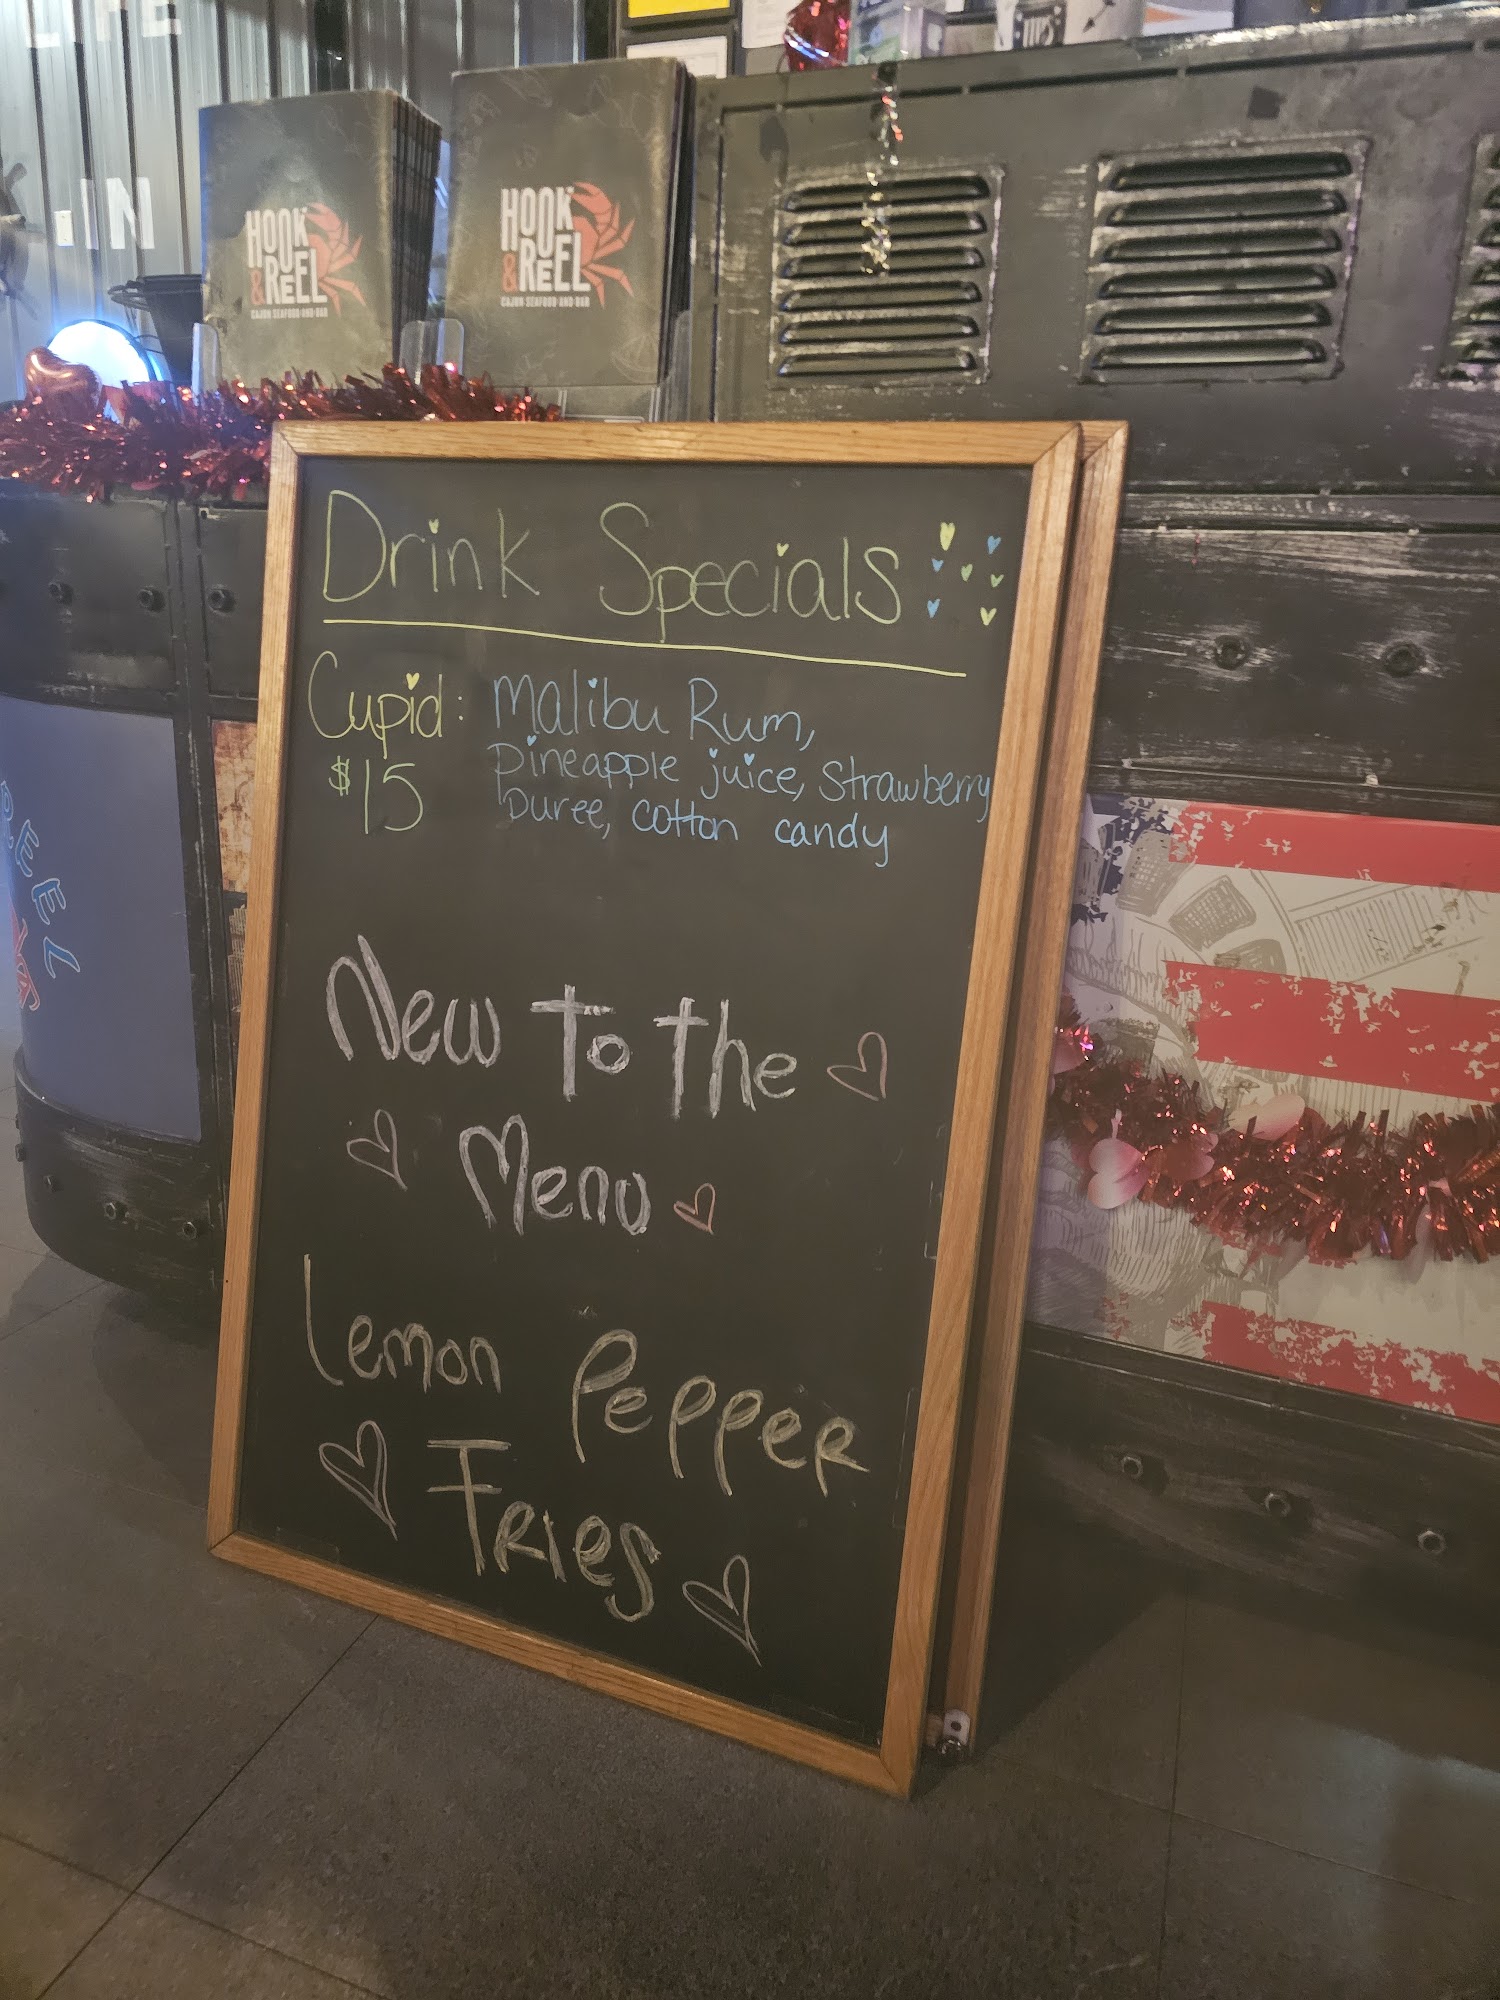 -IN
HOOK
& REEL
CAJUN SEAFOOD AND BAR
HOOK
& REEL
CAJUN SEAFOOD AND BAR
Drink Specials
Cupid: Malibu Rum,
$15 pineapple juice, strawberry
puree, cotton candy
New To the
Menu
Lemon Pepper
Fries
REEL